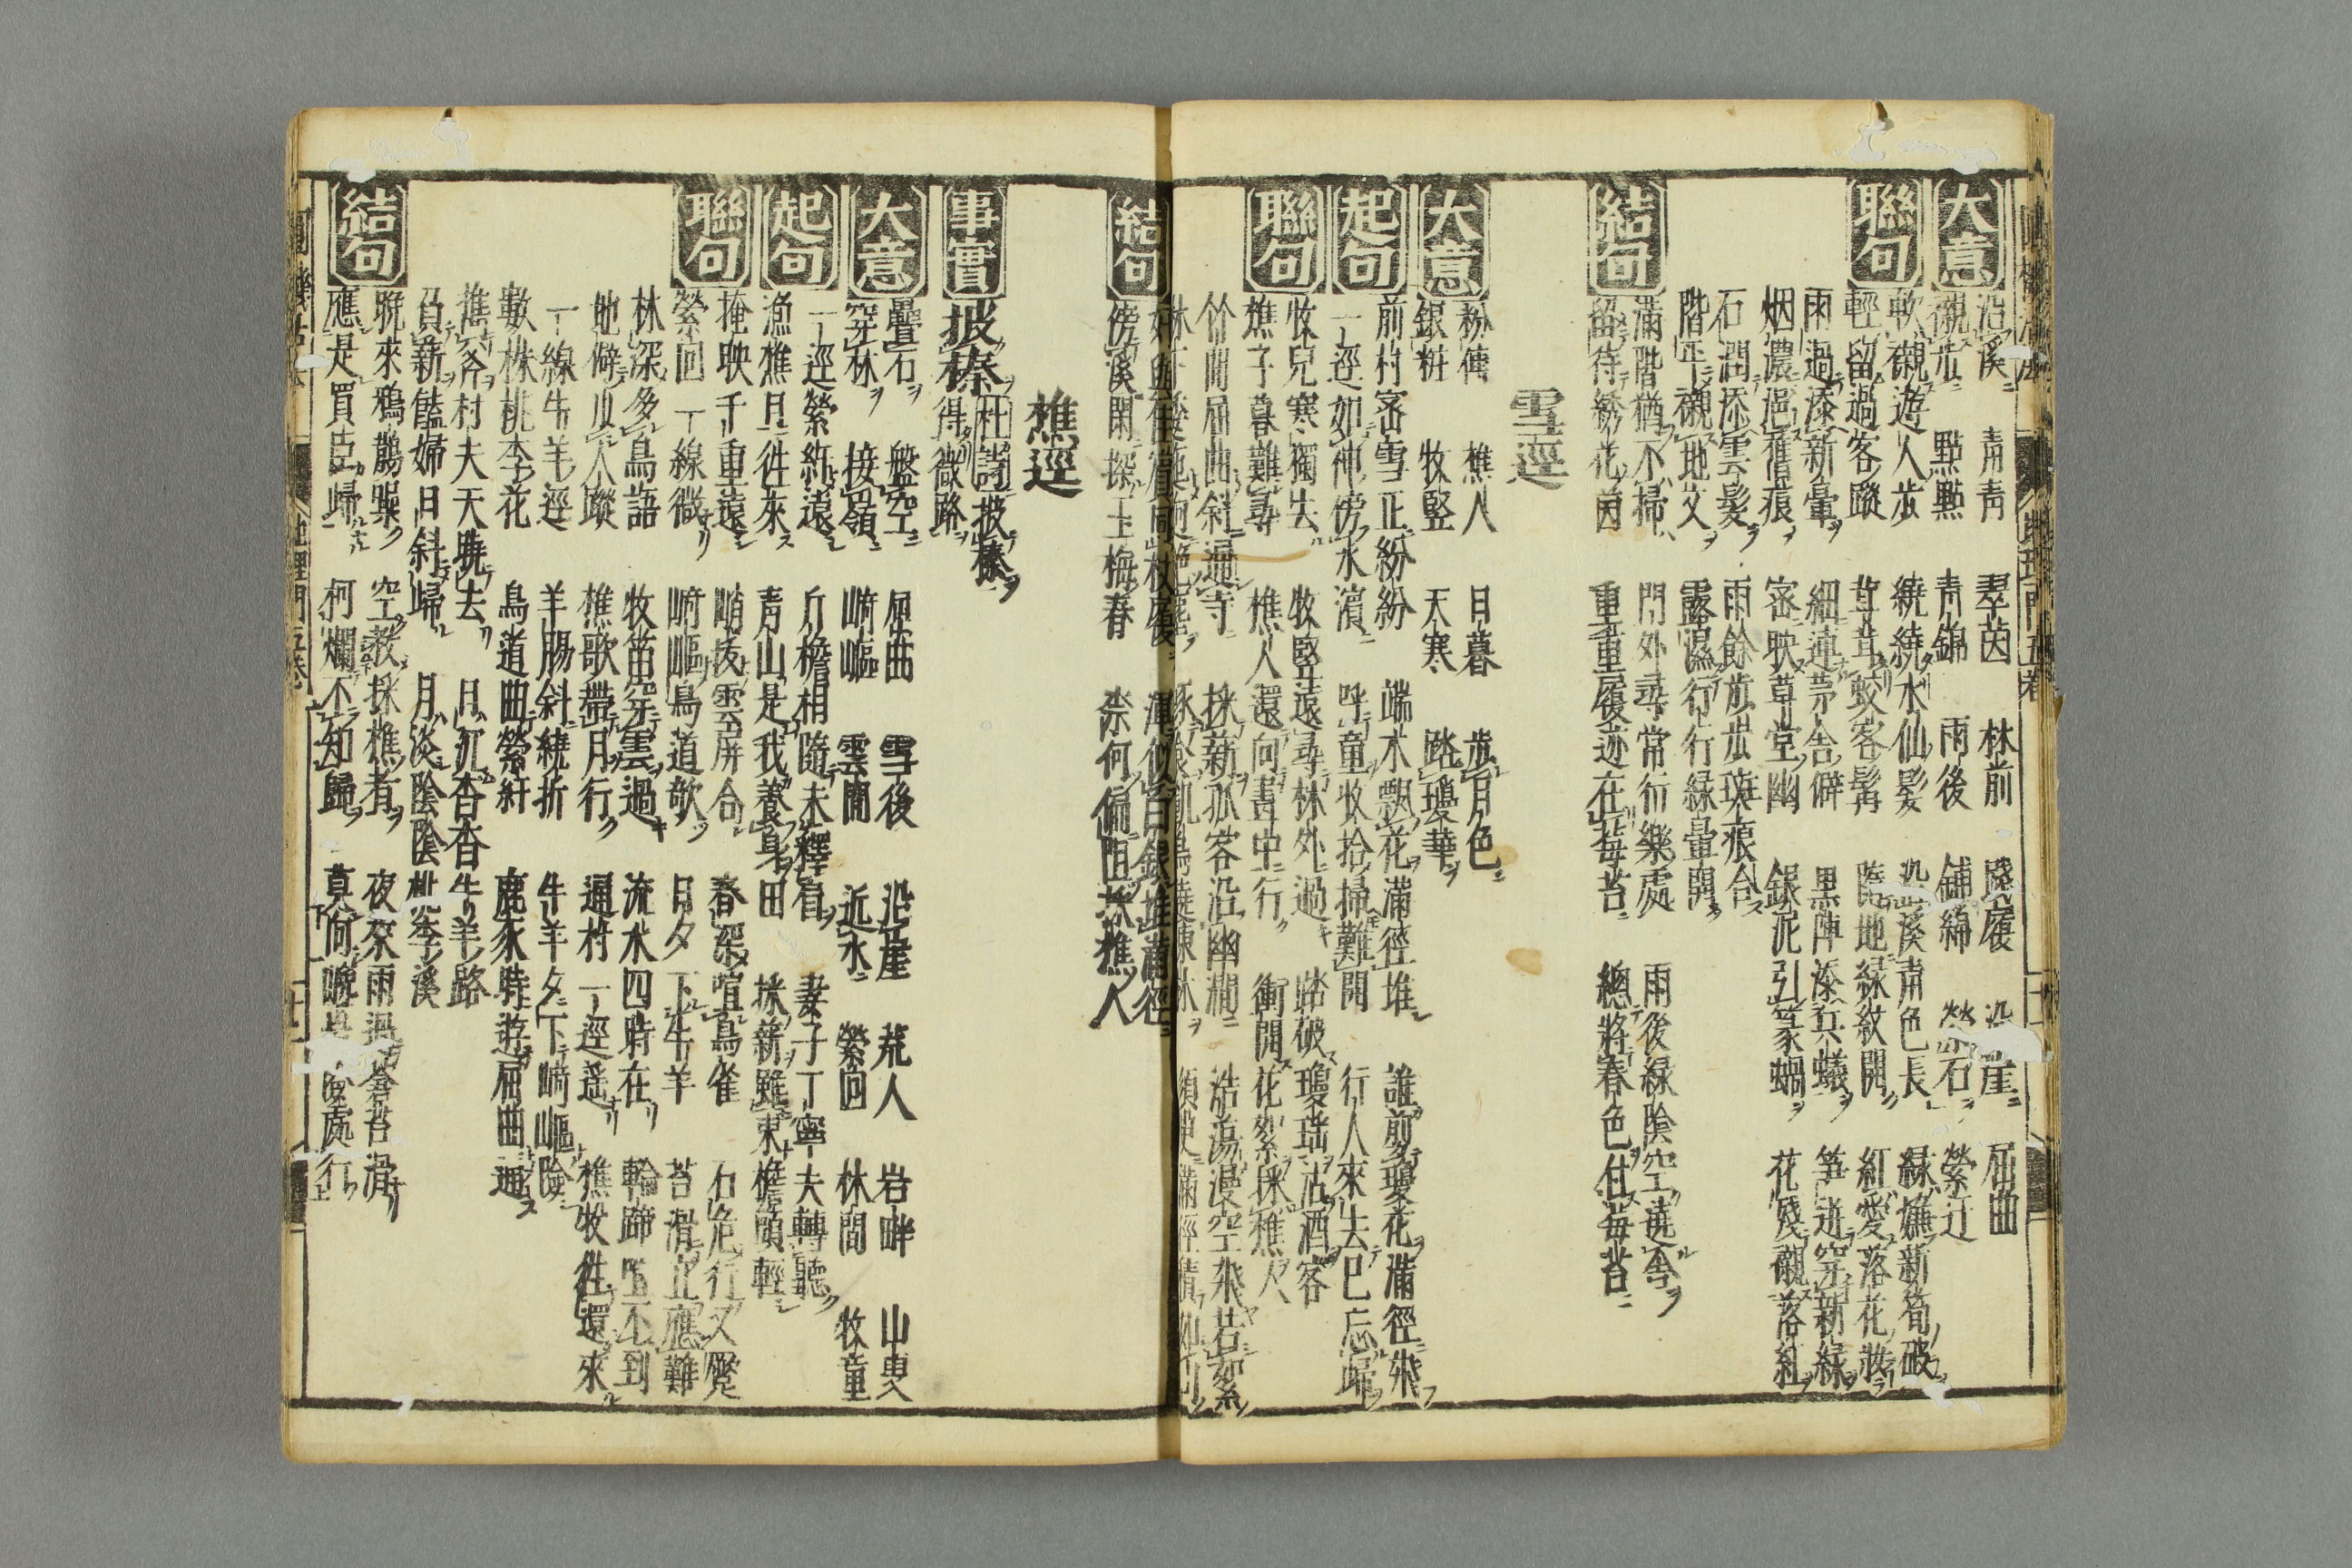 大意
沿溪 靑靑 翠茵 林前 殘履 沿崖 屈曲
襯步 點點 靑錦 雨後 鋪綿 縈石 縈迂
聯句
軟襯遊人步 繞繞水仙髮 沿溪靑色長 綠嫵新筍破
輕留過客蹤 茸茸鮫客髯 臨地綠紋開 紅愛落花妝
雨過添新暈 細連茅舍僻 黑陣添兵蟻 笋迸穿新綠
烟濃浥舊痕 密映草堂幽 銀泥引篆蝸 花殘襯落紅
石潤添雲髮 雨餘步步斑痕合
階平襯地文 露濕行行綠暈開
結句
滿階猶不掃 門外尋常行樂處 雨後綠陰空遶舍
留待綉花茵 重重履迹在莓苔 總將春色付莓苔
雪逕
大意
粉傳 樵人 日暮 步月色
銀粧 牧竪 天寒 踏瓊華
起句
前村密雪正紛紛 端木飄花滿徑堆 誰剪瓊花滿徑飛
一逕如神傍水濱 呼童牧拾掃難開 行人來去已忘歸
聯句
牧兒寒獨去 牧竪遠尋林外過 踏破瓊瑤沽酒客
樵子暮難尋 樵人還向畫中行 衝開花絮採樵人
竛竮屈曲斜通寺 採新孤客沿幽澗 浩蕩漫空飛若絮
結句
好與住賓同杖履 渾似白銀堆滿徑
傍溪閑探玉梅春 柰何偏阻採樵人
樵逕
事實
披榛 杜詩披榛得微路
大意
疊石 盤空 屈曲 雪後 沿崖 荒人 岩畔 山叟
穿林 接嶺 崎嶇 雲間 近水 縈回 林間 牧童
起句
一逕縈紆遠 斤檐相隨未釋肩 妻子丁寧夫轉聽
漁樵且徃來 靑山是我養身田 採薪雖束檐頭輕
聯句
掩映千重遠 峭拔雲屏合 春深喧鳥雀 石危行又蹷
縈回一線微 崎嶇鳥道欹 日夕下牛羊 苔滑止應難
林深多鳥語 牧笛穿雲過 流水四時在 輪蹄不到
地僻少人蹤 樵歌帶月行 通村一逕遥 樵牧徃還來
一線牛羊逕 羊腸斜繞折 牛羊夕下崎嶇險
數株桃李花 鳥道曲縈紆 鹿豕時遊屈曲通
樵斧村夫天曉去 月沉杳杳牛羊路
負新饁婦日斜歸 月淡陰陰桃李溪
結句
晩來鴉鵲噪 空教採樵者 夜來雨過蒼苔滑
應是買臣歸 柯爛不知歸 莫向處行